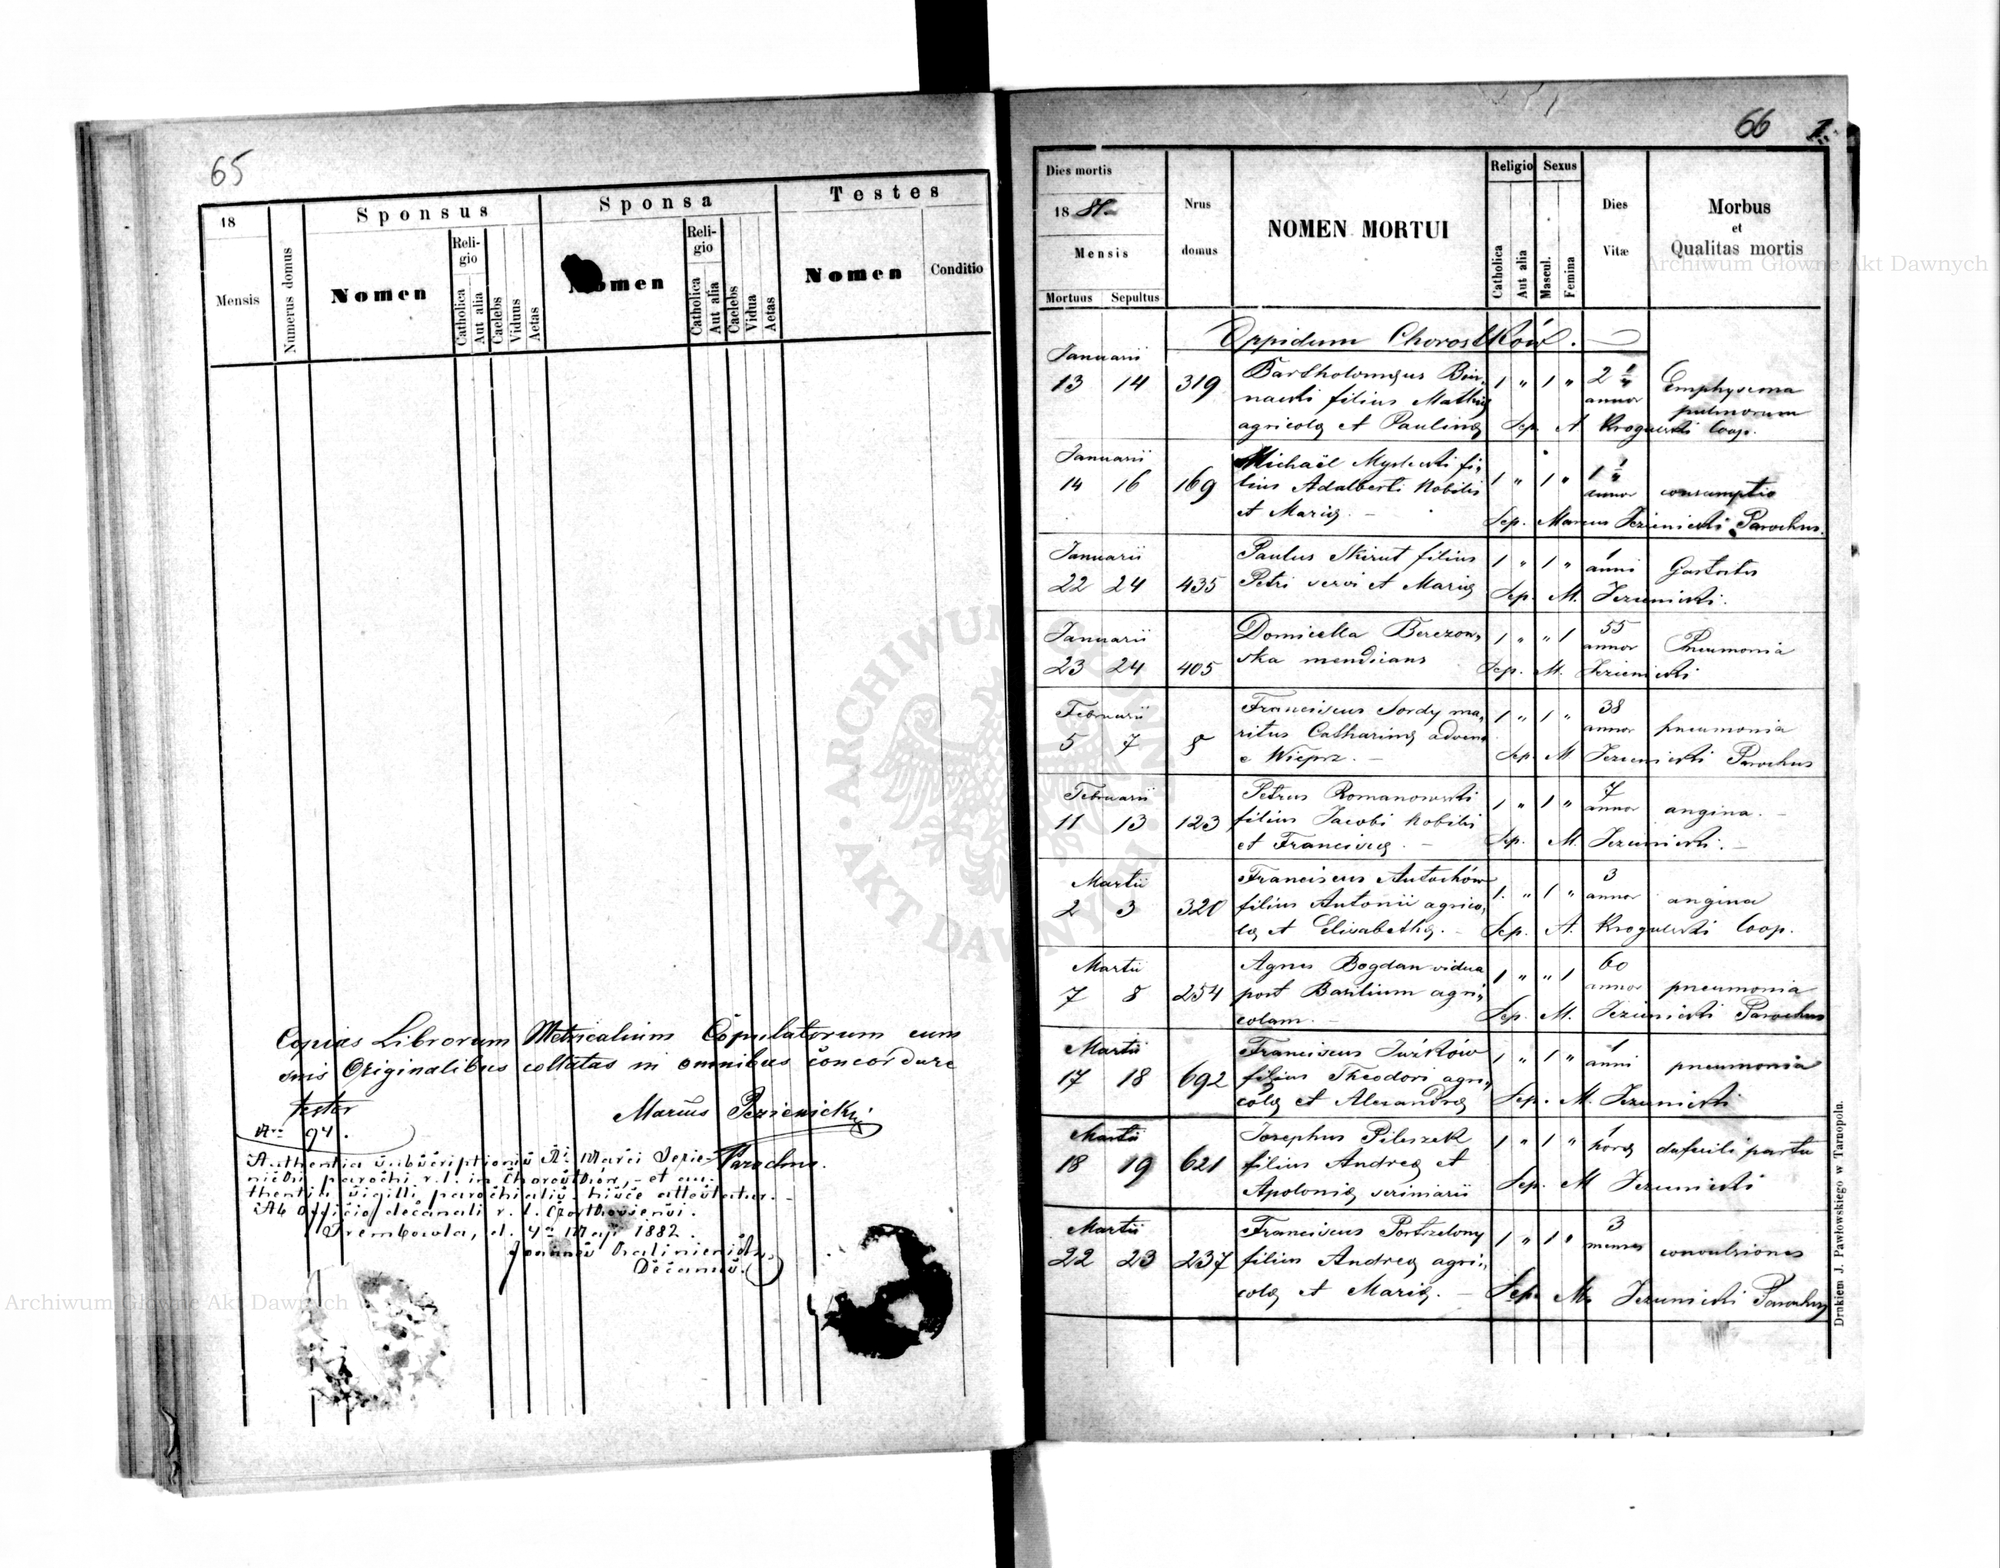 65
18
Mensis
Numerus domus
Sponsus
Nomen
Religio
Catholica
Aut alia
Caelebs
Viduus
Aetas
Sponsa
Nomen
Religio
Catholica
Aut alia
Caelebs
Vidua
Aetas
Testes
Nomen
Conditio
Copias Librorum Metricalium Copulatorum cum
suis Originalibus collatas in omnibus concordare
testor
Marcus Jezienicki
Parochus.
Nro 94.
Authentia subscriptionis Rdi Marci Jezie-
nicki parochi r. l. in Chorostków, et au-
thentia sigilli parochialis hisce attestatur.
Ab officio decanali r. l.
Trembowla, d. 4ta Maji 1882.
Joannes
Decanus.
66
Dies mortis
18 81
Mensis
Mortuus Sepultus
Nrus
domus
NOMEN MORTUI
Religio
Catholica
Aut alia
Sexus
Mascul.
Femina
Dies
Vitæ
Morbus
et
Qualitas mortis
Oppidum Chorostków.
Januarii
13 14 319 Bartholomæus Bier-
nacki filius Mathiæ
agricolæ et Paulinæ
1 " 1 " 2 1/2 annor Emphysema
pulmorum
Sep. A Krogulecki Coop.
Januarii
14 16 169 Michaël Mysłecki fi-
lius Adalberti Nobilis
et Mariæ.
1 " 1 " 1 1/2 annor consumptio
Sep. Marcus Jezienicki Parochus.
Januarii
22 24 435 Paulus Skirut filius
Petri servi et Mariæ
1 " 1 " 1 anni
Sep. M. Jezienicki.
Januarii
23 24 405 Domicella Berezow-
ska mendicans
1 " " 1 55 annor Pneumonia
Sep. M. Jezienicki
Februarii
5 7 8 Franciscus Sordy ma-
ritus Catharinæ advena
e Wieprz.
1 " 1 " 38 annor pneumonia
Sep. M Jezienicki Parochus
Februarii
11 13 123 Petrus Romanowski
filius Jacobi Nobilis
et Franciscæ.
1 " 1 " 7 annor angina.
Sep. M. Jezienicki.
Martii
2 3 320 Franciscus Antochów
filius Antonii agrico-
læ et Elisabethæ.
1 " 1 " 3 annor angina
Sep. A. Krogulecki Coop.
Martii
7 8 254 Agnes Bogdan vidua
post Basilium agri-
colam.
1 " " 1 60 annor pneumonia
Sep. M. Jezienicki Parochus
Martii
17 18 692 Franciscus Juśków
filius Theodori agri-
colæ et Alexandræ
1 " 1 " 1 anni pneumonia
Sep. M. Jezienicki
Martii
18 19 621 Josephus Pileszek
filius Andreæ et
Apoloniæ scriniarii
1 " 1 " 1 horæ difficili partu
Sep. M Jezienicki
Martii
22 23 237 Franciscus
filius Andreæ agri-
colæ et Mariæ.
1 " 1 " 3 menses convulsiones
Sep. M. Jezienicki Parochus
Drukiem J. Pawłowskiego w Tarnopolu.
Archiwum Główne Akt Dawnych
Archiwum Główne Akt Dawnych
ARCHIWUM GŁÓWNE AKT DAWNYCH